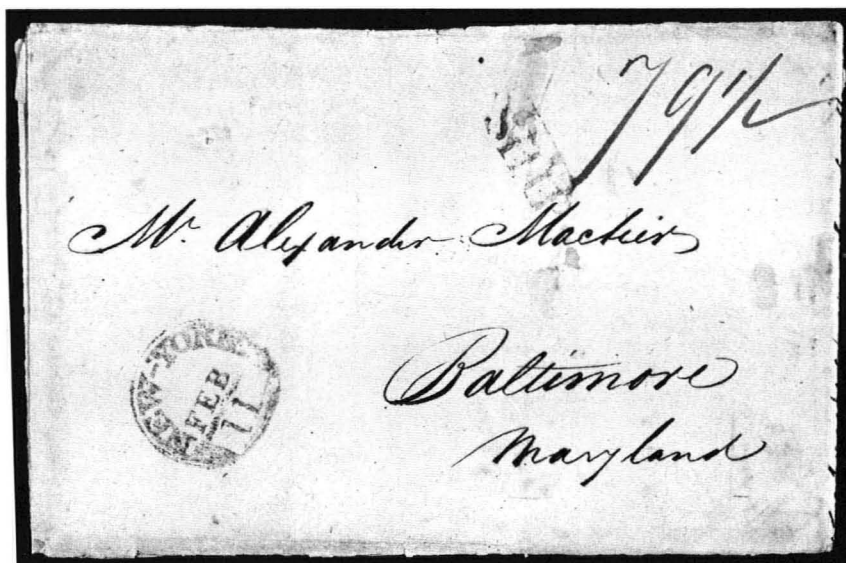 79½
Mr. Alexander Mactier
Baltimore
Maryland
NEW-YORK
FEB
11